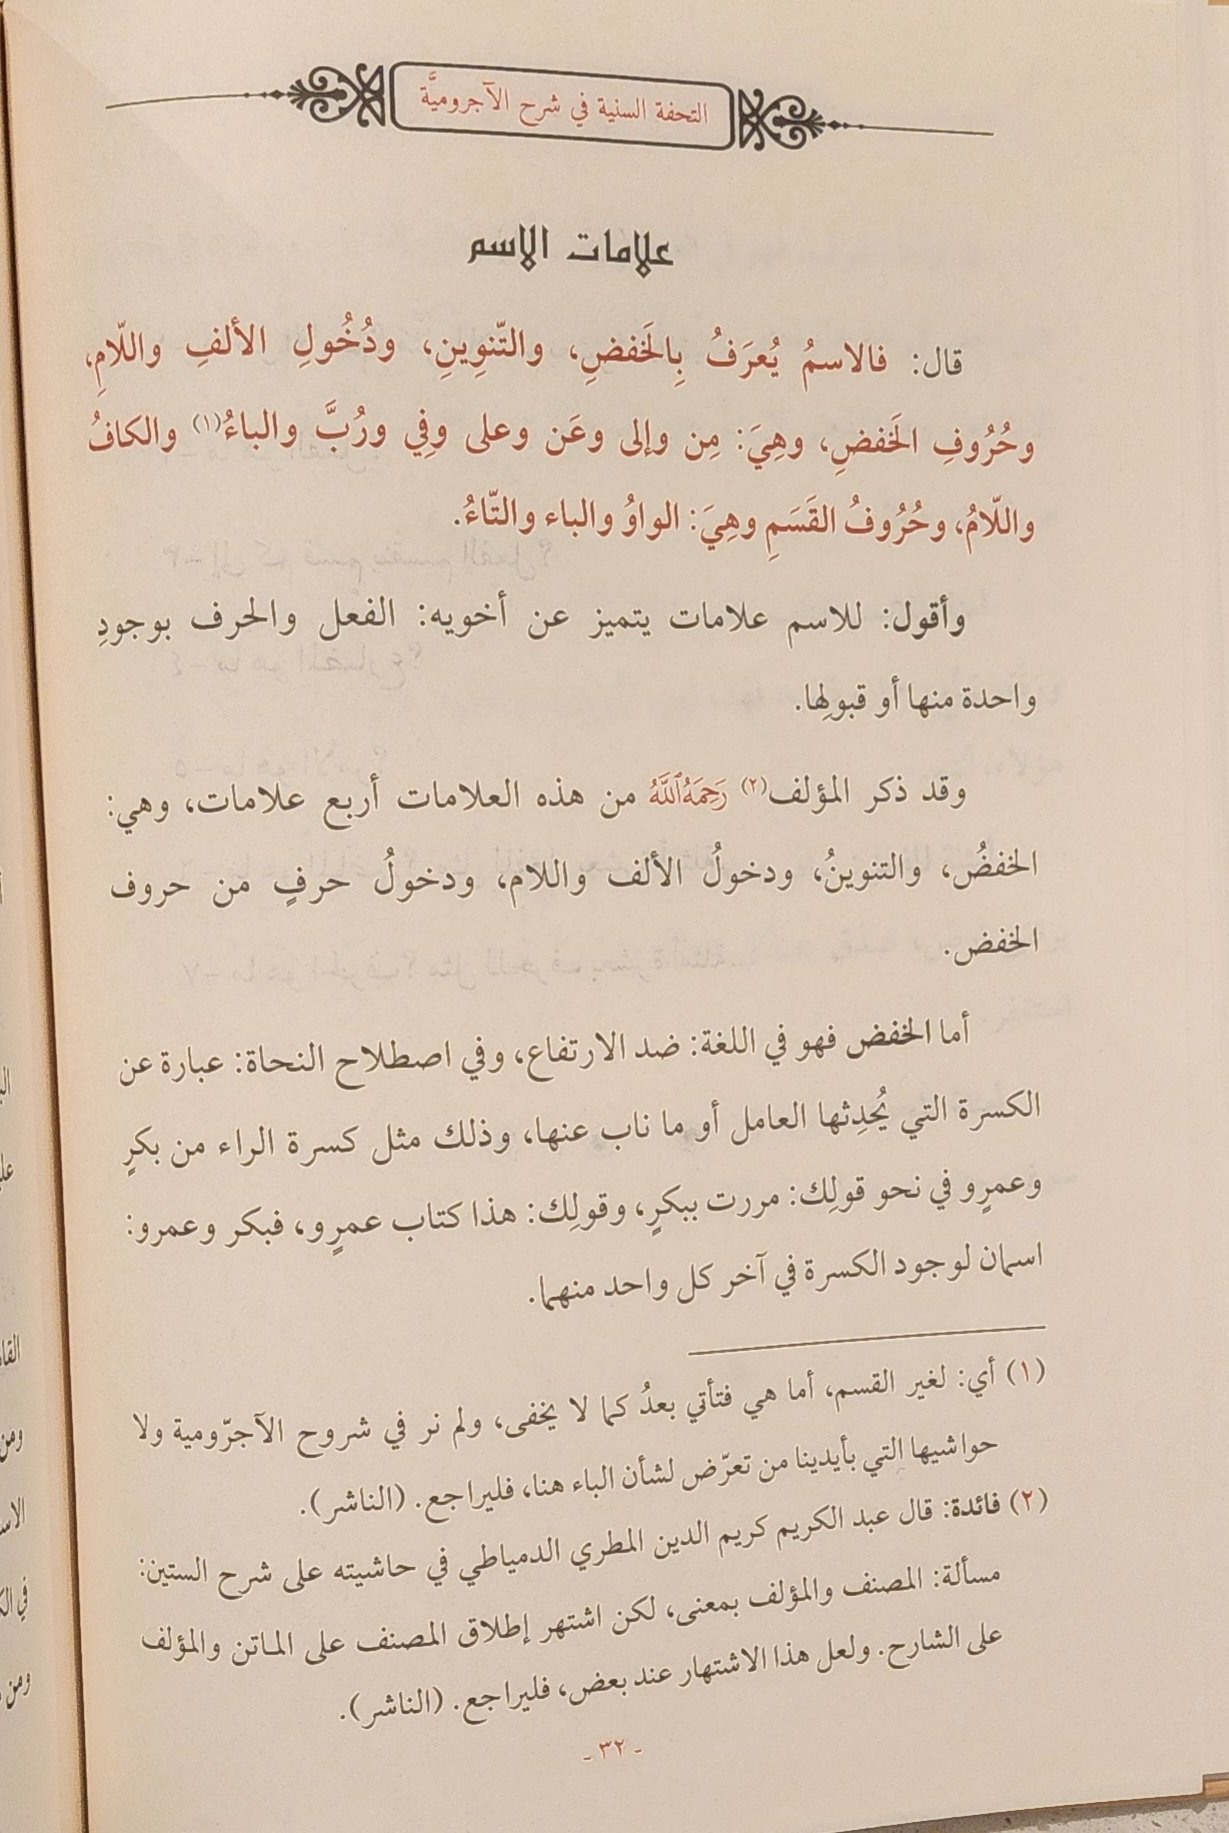 التحفة السنية في شرح الآجروميَّة
علامات الاسم
قال: فالاسمُ يُعرَفُ بِالخَفضِ، والتّنوِينِ، ودُخُولِ الألفِ واللّامِ،
وحُرُوفِ الخَفضِ، وهِيَ: مِن وإلى وعَن وعلى وفِي ورُبَّ والباءُ(١) والكافُ
واللّامُ، وحُرُوفُ القَسَمِ وهِيَ: الواوُ والباء والتّاءُ.
وأقول: للاسم علامات يتميز عن أخويه: الفعل والحرف بوجودِ
واحدة منها أو قبولِها.
وقد ذكر المؤلف(٢) رَحِمَهُ ٱللَّهُ من هذه العلامات أربع علامات، وهي:
الخفضُ، والتنوينُ، ودخولُ الألف واللام، ودخولُ حرفٍ من حروف
الخفض.
أما الخفض فهو في اللغة: ضد الارتفاع، وفي اصطلاح النحاة: عبارة عن
الكسرة التي يُحدِثها العامل أو ما ناب عنها، وذلك مثل كسرة الراء من بكرٍ
وعمرٍو في نحو قولِك: مررت ببكرٍ، وقولِك: هذا كتاب عمرٍو، فبكر وعمرو:
اسمان لوجود الكسرة في آخر كل واحد منهما.
(١) أي: لغير القسم، أما هي فتأتي بعدُ كما لا يخفى، ولم نر في شروح الآجرّومية ولا
حواشيها التي بأيدينا من تعرّض لشأن الباء هنا، فليراجع. (الناشر).
(٢) فائدة: قال عبد الكريم كريم الدين المطري الدمياطي في حاشيته على شرح الستين:
مسألة: المصنف والمؤلف بمعنى، لكن اشتهر إطلاق المصنف على الماتن والمؤلف
على الشارح. ولعل هذا الاشتهار عند بعض، فليراجع. (الناشر).
- ٣٢ -